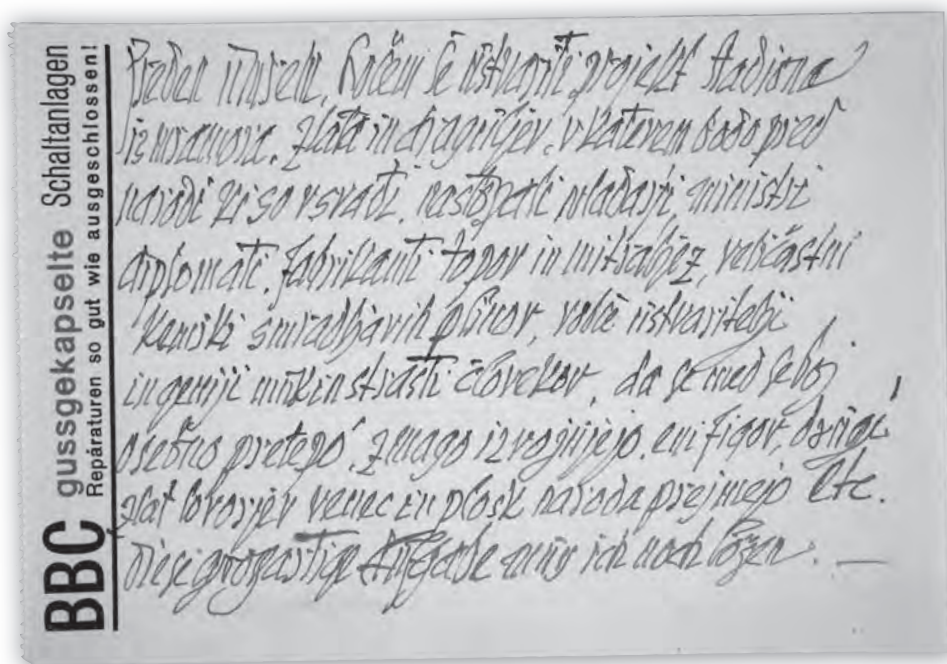 BBC gussgekapselte Schaltanlagen
Reparaturen so gut wie ausgeschlossen!
Preden umrem, hočem še ustvariti projekt stadiona
iz mramora, zlata in draguljev, v katerem bodo pred
narodi ki so v svadi, nastopali vladarji, ministri
diplomati, fabrikanti topov in mitraljez, veličastni
kemiki smradljavih plinov, ustvaritelji
in geniji muk in strasti človekov, da se med seboj
osebno pretepo, zmago izvojujejo, eni figov, drugi
zlat lovorjev venec in plosk naroda prejmejo etc.
Diese großartige Aufgabe muß ich noch lösen. —